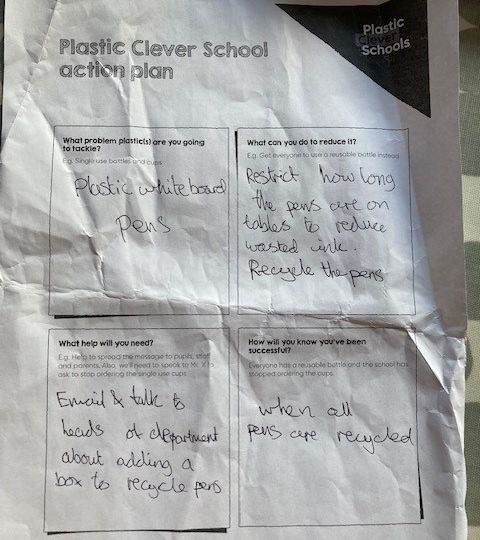 Plastic Clever School
action plan
Plastic
Clever
Schools
What problem plastic(s) are you going
to tackle?
E.g. Single use bottles and cups
Plastic whiteboard
pens
What can you do to reduce it?
E.g. Get everyone to use a reusable bottle instead
Restrict how long
the pens are on
tables to reduce
wasted ink.
Recycle the pens
What help will you need?
E.g. Help to spread the message to pupils, staff
and parents. Also, we'll need to speak to Mr. X to
ask to stop ordering the single use cups
Email & talk to
heads of department
about adding a
box to recycle pens
How will you know you've been
successful?
Everyone has a reusable bottle and the school has
stopped ordering the cups.
when all
pens are recycled